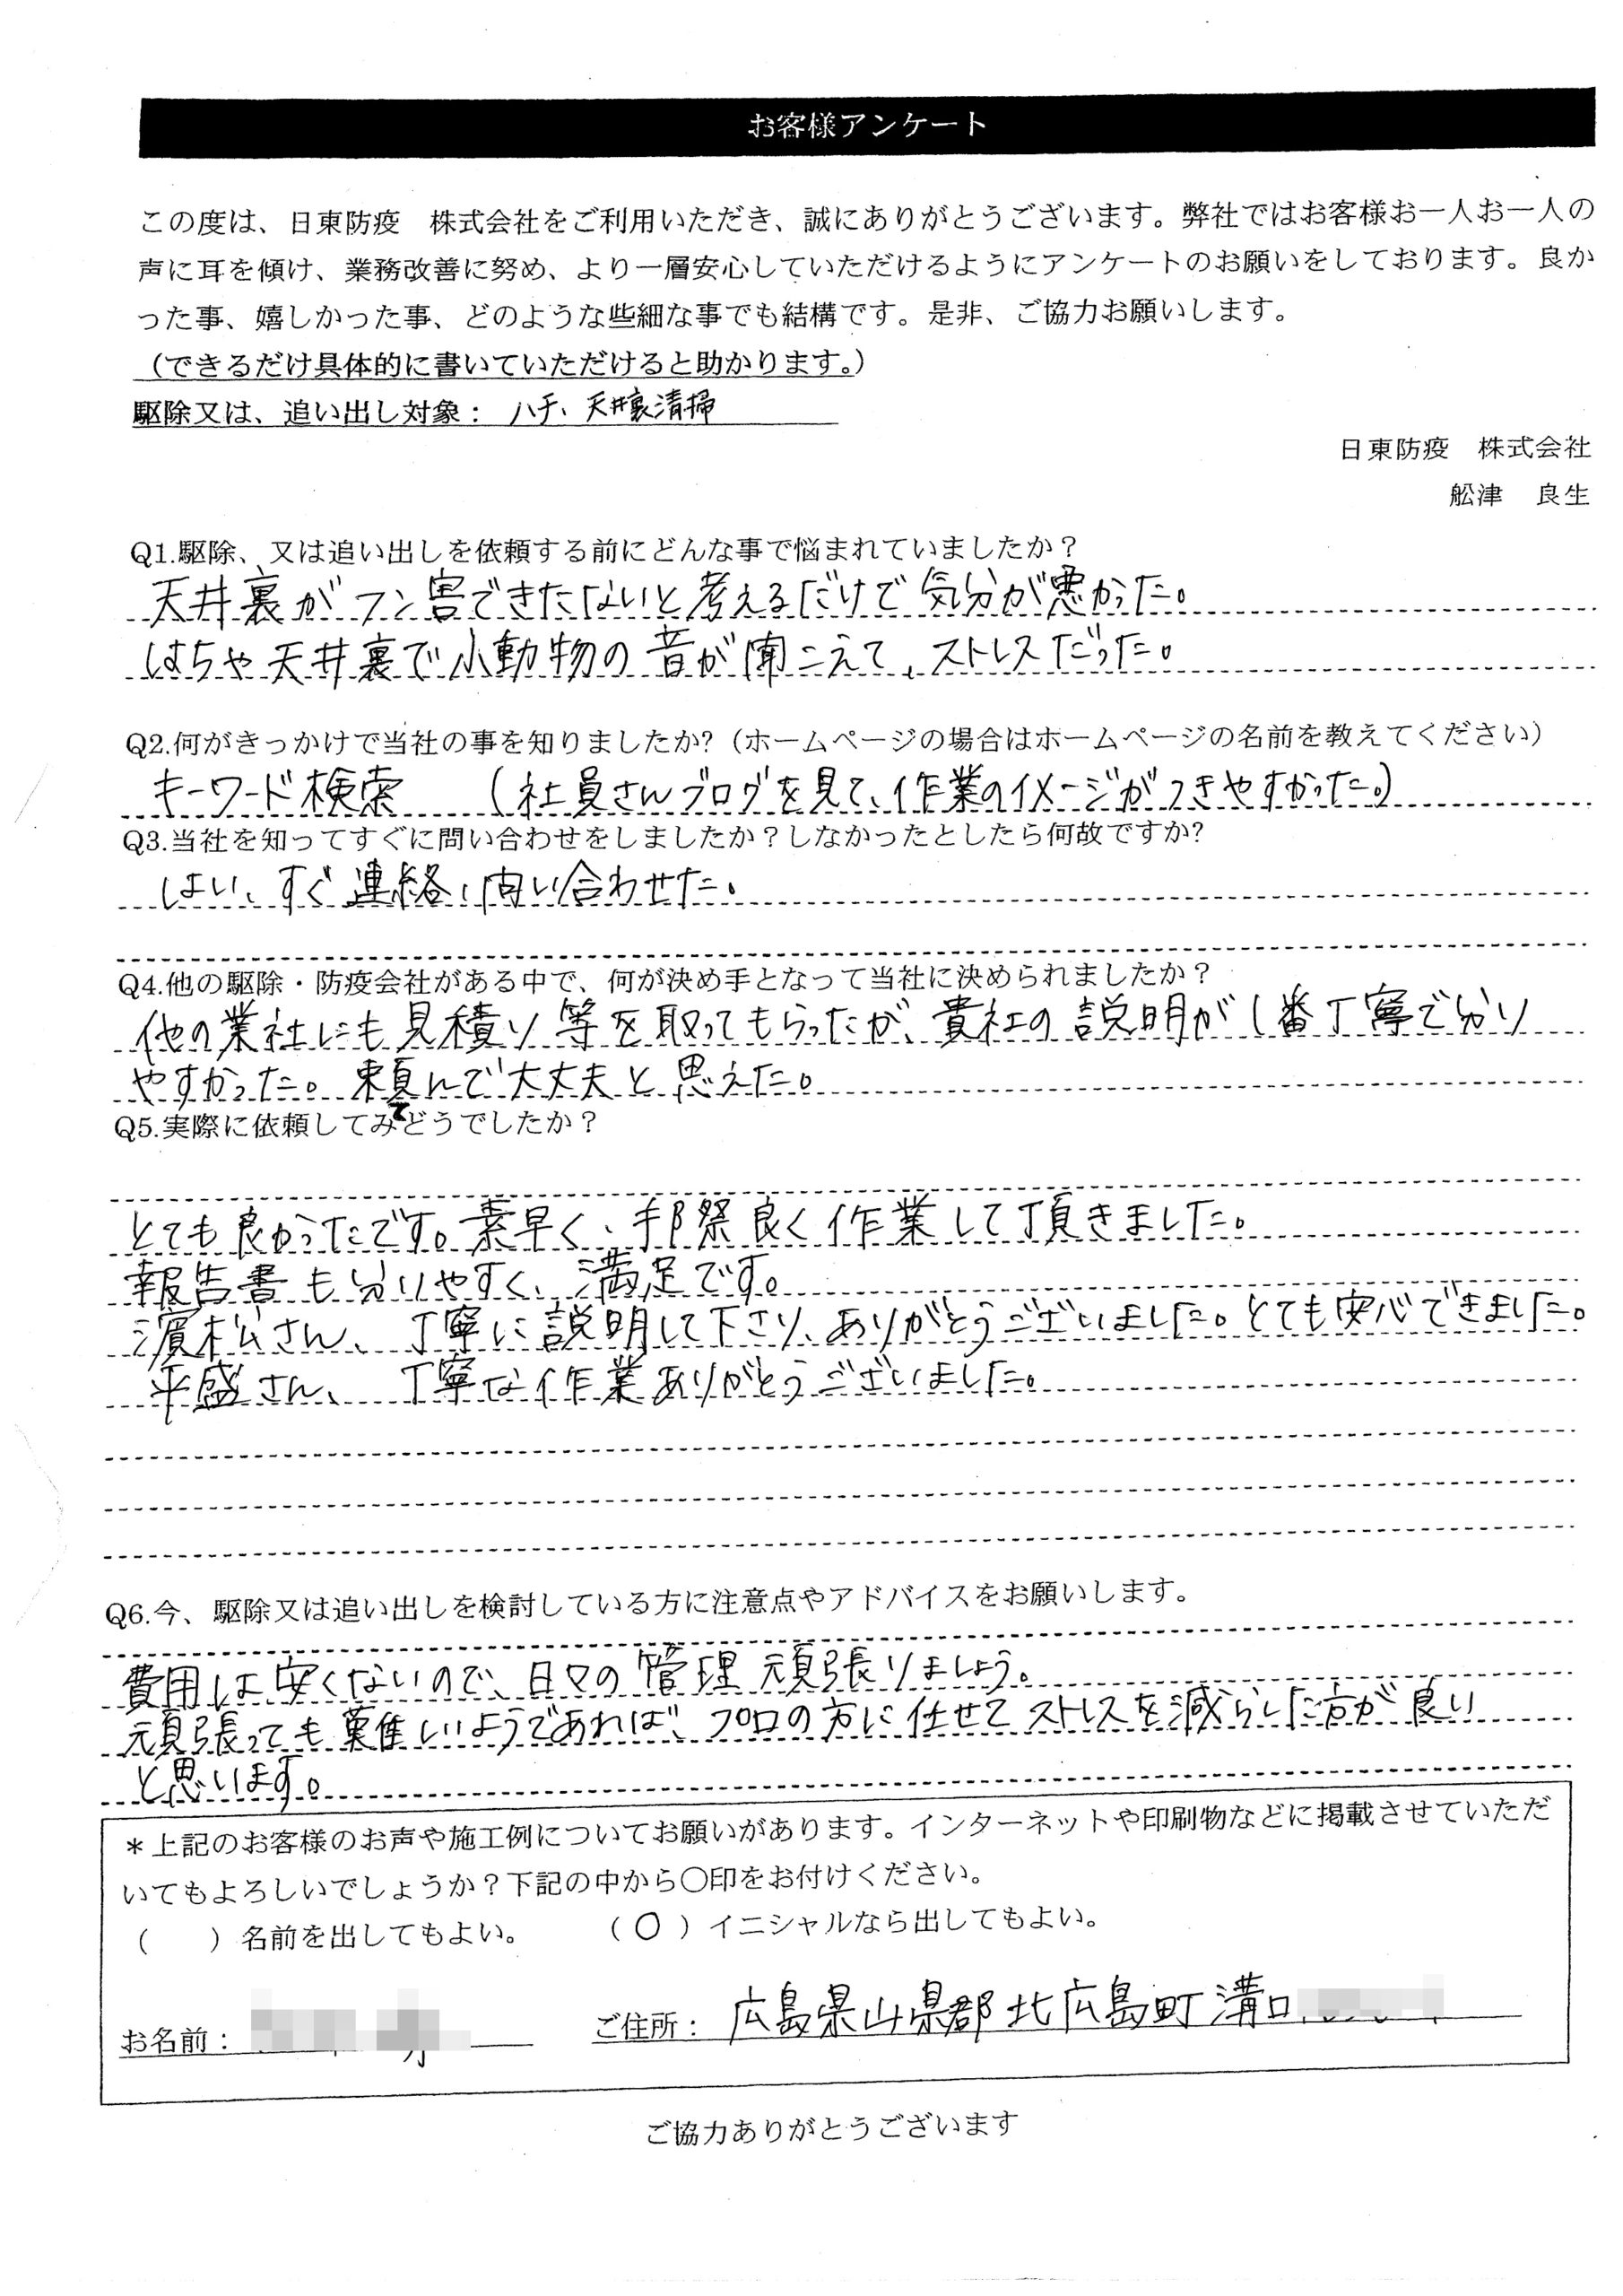 お客様アンケート
この度は、日東防疫　株式会社をご利用いただき、誠にありがとうございます。弊社ではお客様お一人お一人の
声に耳を傾け、業務改善に努め、より一層安心していただけるようにアンケートのお願いをしております。良か
った事、嬉しかった事、どのような些細な事でも結構です。是非、ご協力お願いします。
（できるだけ具体的に書いていただけると助かります。）
駆除又は、追い出し対象： ハチ、天井裏清掃
日東防疫　株式会社
舩津　良生
Q1.駆除、又は追い出しを依頼する前にどんな事で悩まれていましたか？
天井裏がフン害できたないと考えるだけで気分が悪かった。
はちや天井裏で小動物の音が聞こえて、ストレスだった。
Q2.何がきっかけで当社の事を知りましたか?（ホームページの場合はホームページの名前を教えてください）
キーワード検索　（社員さんブログを見て、作業のイメージがつきやすかった。）
Q3.当社を知ってすぐに問い合わせをしましたか？しなかったとしたら何故ですか?
はい、すぐ連絡、問い合わせた。
Q4.他の駆除・防疫会社がある中で、何が決め手となって当社に決められましたか？
他の業社にも見積り等を取ってもらったが、貴社の説明が1番丁寧で分り
やすかった。頼んで大丈夫と思えた。
Q5.実際に依頼してみてどうでしたか？
とても良かったです。素早く、手際良く作業して頂きました。
報告書も分りやすく、満足です。
濱松さん、丁寧に説明して下さり、ありがとうございました。とても安心できました。
平盛さん、丁寧な作業ありがとうございました。
Q6.今、駆除又は追い出しを検討している方に注意点やアドバイスをお願いします。
費用は安くないので、日々の管理頑張りましょう。
頑張っても難しいようであれば、プロの方に任せてストレスを減らした方が良い
と思います。
＊上記のお客様のお声や施工例についてお願いがあります。インターネットや印刷物などに掲載させていただ
いてもよろしいでしょうか？下記の中から〇印をお付けください。
（　　）名前を出してもよい。　　（〇）イニシャルなら出してもよい。
お名前：　　ご住所： 広島県山県郡北広島町溝口
ご協力ありがとうございます